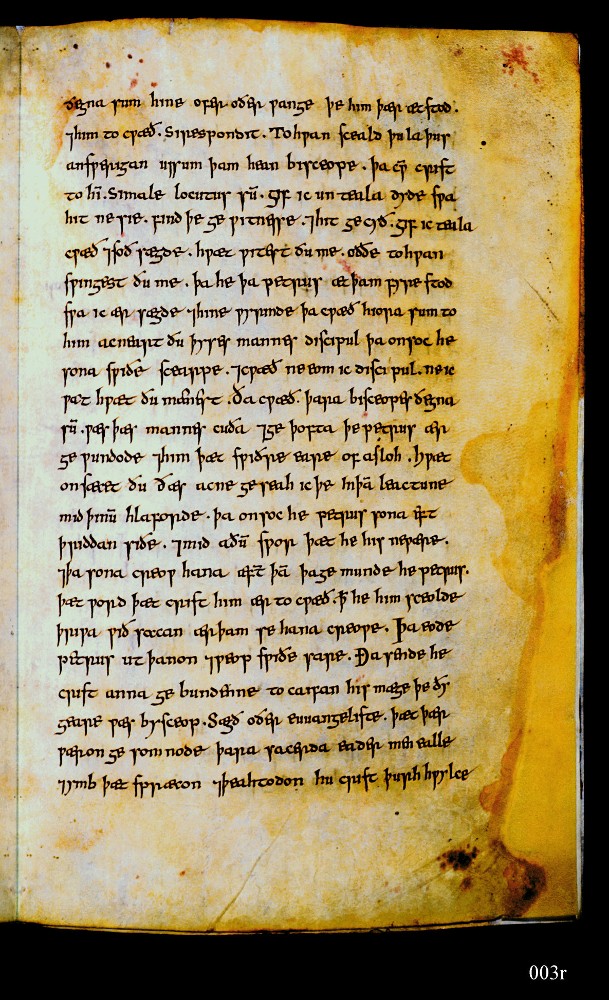 ðegna sum hine ofer oðer ƿange þe him þær ætstod.
⁊him to cƿæð. Si respondit. To hƿan sceald þu la þus
andsƿerigan ussum þam hean bisceope. þa cƿ̄ crist
to hī. Si male locutus sū. Gif ic untela dyde sƿa
hit ne sie. sind þe ge ƿitnesse. ⁊hit ge cyð. gif ic tela
cƿæð ⁊soð sægde. hƿæt ƿitest ðu me. oððe to hƿan
sƿingest ðu me. þa he þa petrus æt þam fyre stod
sƿa ic ær sægde ⁊hine ƿyrmde þa cƿæð hiora sum to
him ac neart ðu þyses mannes discipul þa onsoc he
sona sƿiðe scearpe. ⁊cƿæð ne eom ic discipul. ne ic
ƿat hƿæt ðu mænst. Ða cƿæð. þara bisceopes ðegna
sū. ƿæs þæs mannes cuða ⁊ge þofta þe petrus ær
ge ƿundode ⁊him þæt sƿiðre eare of asloh. Hƿæt
onsæcst ðu ðæs ac ne ge seah ic þe hīþā leactune
mid þinū hlaforde. þa onsoc he petrus sona æft
þriddan siðe. ⁊mid aðū sƿor þæt he his ne ƿære.
⁊þa sona creoƿ hana æft̄ þā þa ge munde he petrus.
þæt ƿord þæt crist him ær to cƿæð. ꝥ he him sceolde
þriƿa ƿið socan ær þam se hana creoƿe. Þa eode
petrus ut þanon ⁊ƿeop sƿiðe sare. Ða sende he
crist anna ge bundenne to caifan his mæge þe ðy
geare ƿæs bysceop. Sægð oðer euuangeliste. þæt þær
ƿæron ge somnode þara sacerda ealder mēn ealle
⁊ymb þæt sprǣcon ⁊þeahtodon hu crist þurh hƿylce
003r